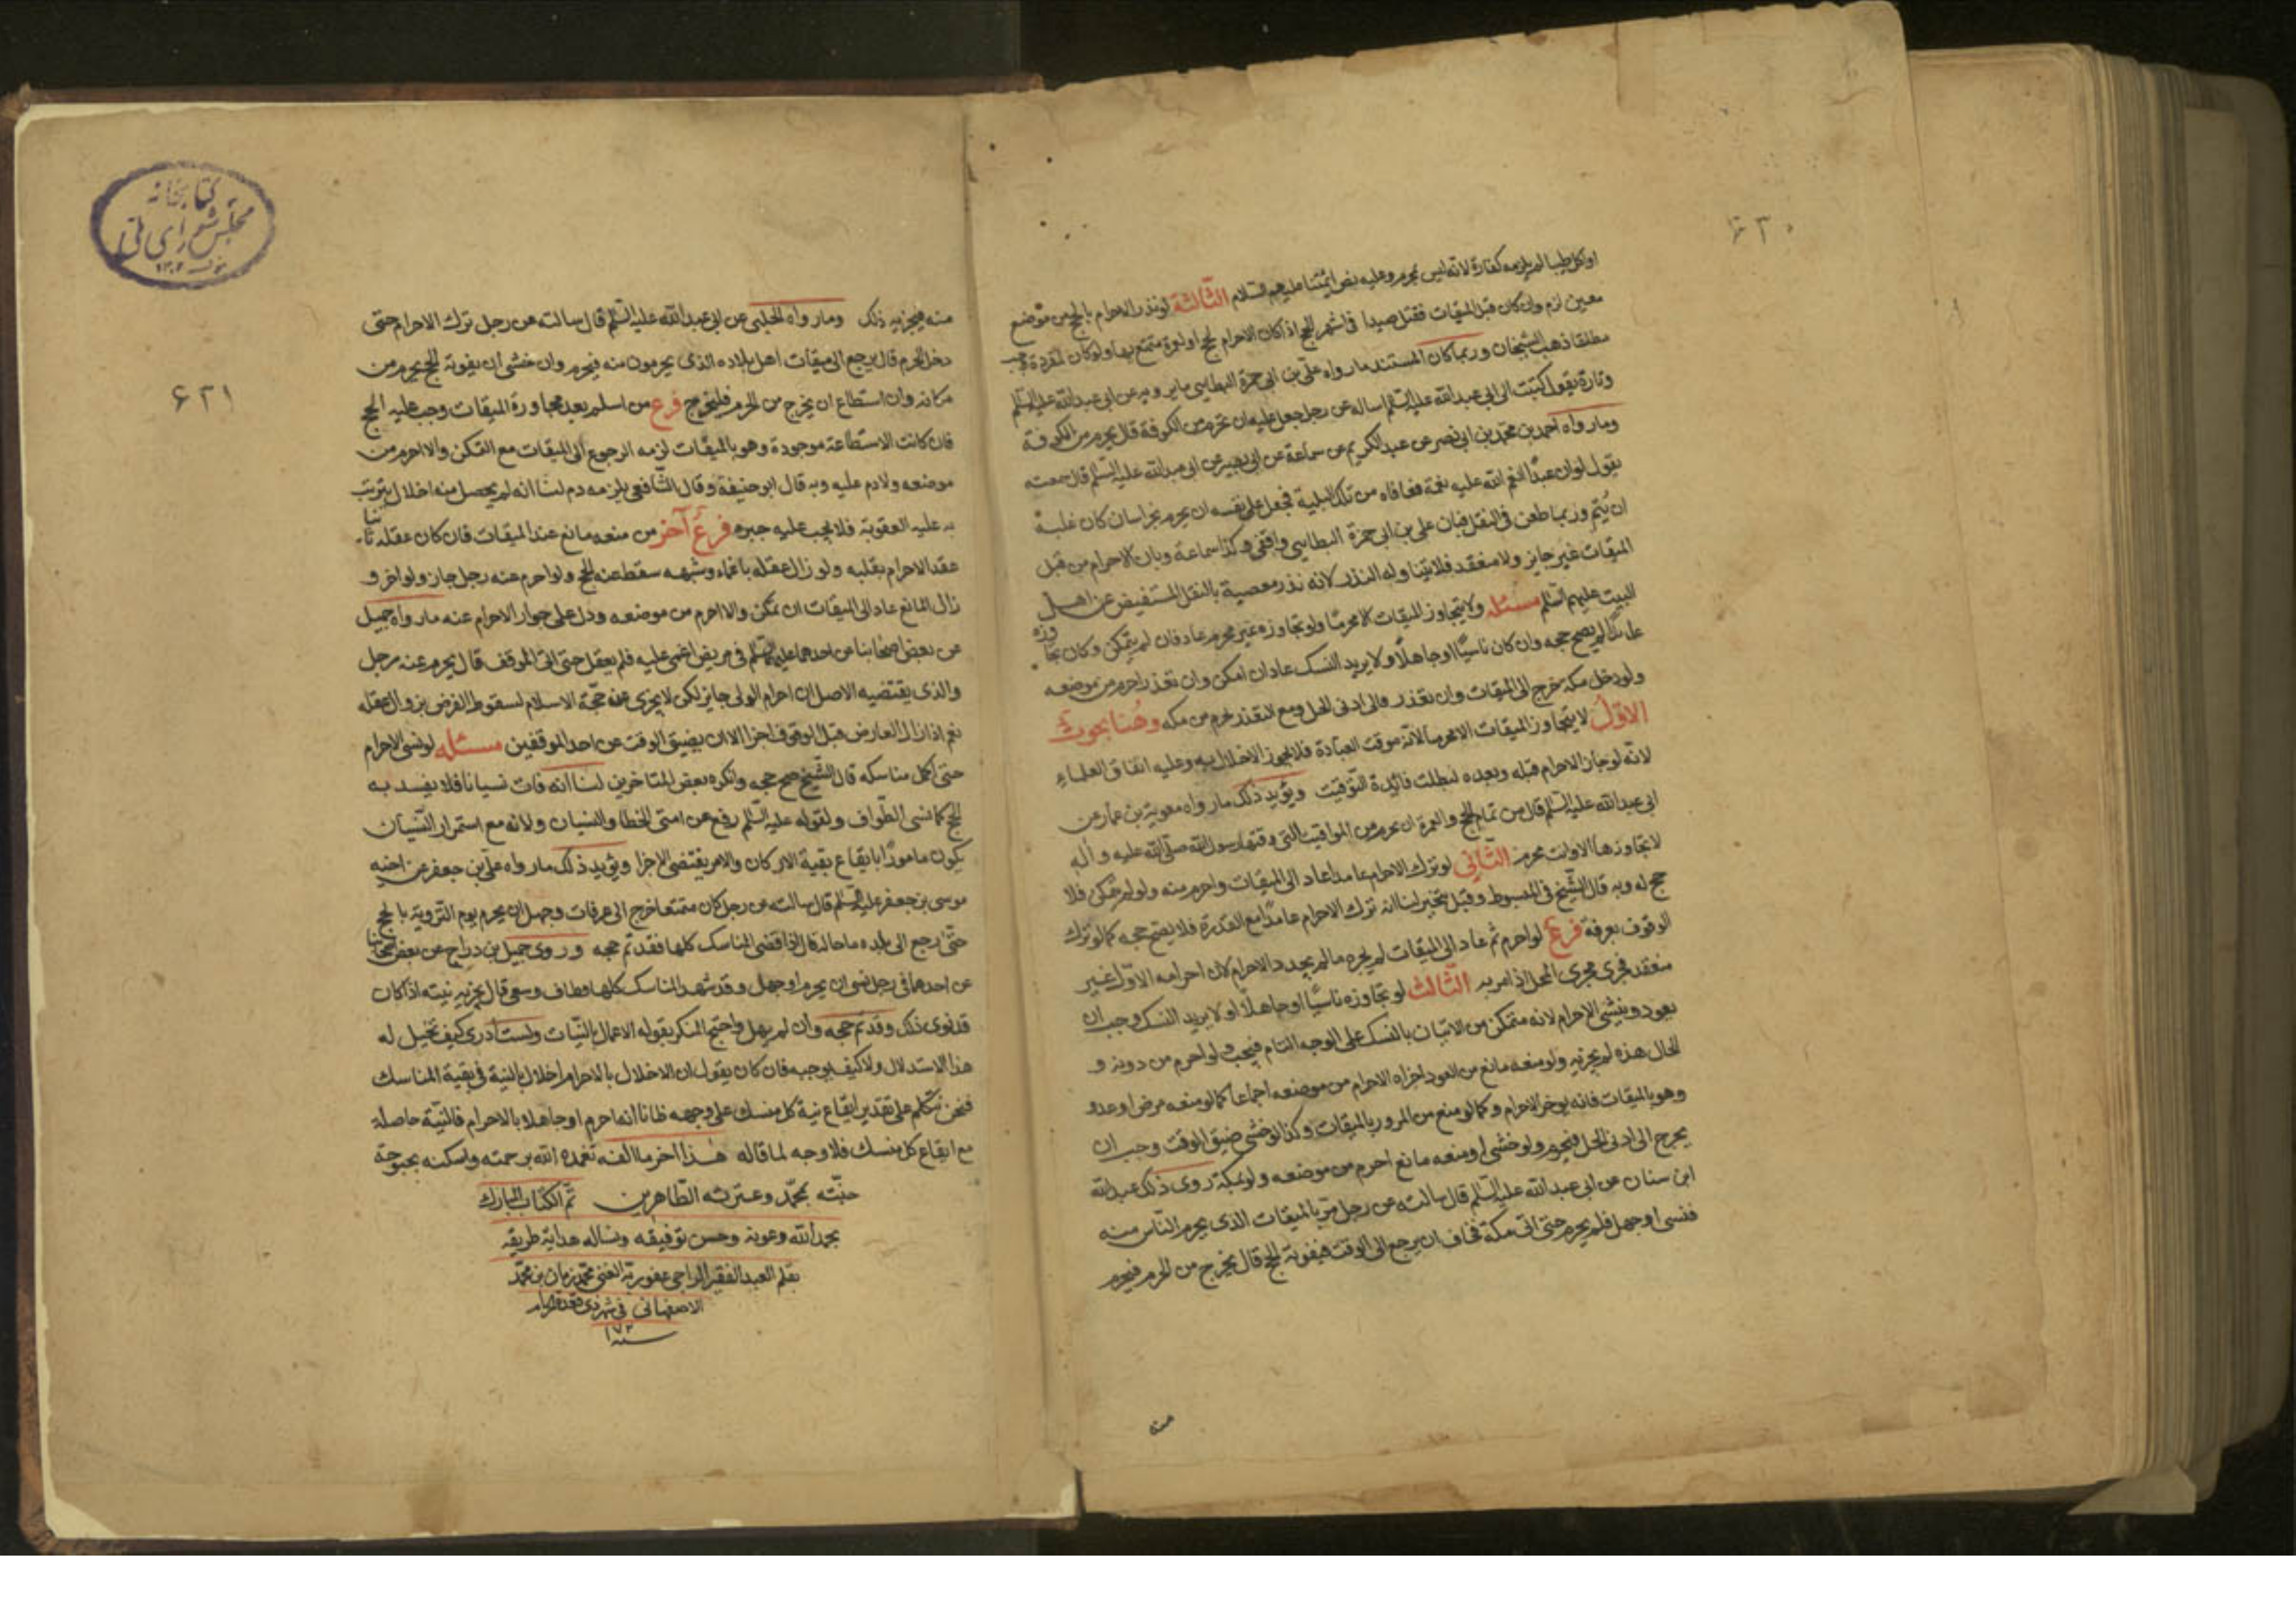 ٦٣٠
او اكل طيبا لم يلزمه كفارة لانه ليس بمحرم وعليه نص ائمتنا عليهم السلام الثالثة لو نذر الاحرام بالحج من موضع
معين لزم وان كان قبل الميقات فقتل صيدا في اشهر الحج اذا كان الاحرام لحج او لعمرة متمتع بها ولو كان لمفردة وجب
مطلقا ذهب الشيخان وربما كان المستند ما رواه علي بن ابي حمزة البطايني ما يرويه عن ابي عبد الله عليه السلم
وتارة يقول كتبت الى ابي عبد الله عليه السلم اساله عن رجل جعل عليه ان يحرم من الكوفة قال يحرم من الكوفة
وما رواه احمد بن محمد بن ابي نصر عن عبد الكريم عن سماعة عن ابي بصير عن ابي عبد الله عليه السلم قال سمعته
يقول لو ان عبدا انعم الله عليه نعمة فعافاه من تلك البلية فجعل على نفسه ان يحرم بخراسان كان عليه
ان يُتم وربما طعن في النقل فبان علي بن ابي حمزة البطايني واقفي وكذا سماعة وبان الاحرام من قبل
الميقات غير جايز ولا منعقد فلا يتناوله النذر لانه نذر معصية بالنقل المستفيض عن اهل
البيت عليهم السلم مسئله ولا يتجاوز الميقات الا محرمًا ولو تجاوزه غير محرم عاد فان لم يتمكن وكان تجاوزه
عامدًا لم يصح حجه وان كان ناسيًا او جاهلاً ولا يريد النسك عاد ان امكن وان تعذر احرم من موضعه
ولو دخل مكة خرج الى الميقات وان تعذر فالى ادنى الحل ومع التعذر يحرم من مكه وهُنا بحوث
الاوّل لا يتجاوز الميقات الا محرما لانه موقت العبادة فلا يجوز الاخلال به وعليه اتفاق العلماء
لانه لو جاز الاحرام قبله وبعده لبطلت فائدة التوقيت ويؤيد ذلك ما رواه معوية بن عمار عن
ابي عبد الله عليه السلم قال من تمام الحج والعمرة ان يحرم من المواقيت التي وقتها رسول الله صلى الله عليه وآله
لا تجاوزها الا وانت محرم الثاني لو ترك الاحرام عامدا عاد الى الميقات واحرم منه ولو لم يتمكن فلا
حج له وبه قال الشيخ في المبسوط وقيل يتخير لنا انه ترك الاحرام عامدًا مع القدرة فلا يصح حجه كما لو ترك
الوقوف بعرفة فرع لو احرم ثم عاد الى الميقات لم يجزه ما لم يجدد الاحرام لان احرامه الاوّل غير
منعقد فجرى مجرى المحل اذا مر به الثالث لو تجاوزه ناسيًا او جاهلاً او لا يريد النسك وجب ان
يعود وينشئ الاحرام لانه متمكن من الاتيان بالنسك على الوجه التام فيجب ولو احرم من دونه و
الحال هذه لم يجزيه ولو منعه مانع من العود اجزاه الاحرام من موضعه اجماعا كما لو منعه مرض او عدو
وهو بالميقات فانه يوخر الاحرام وكما لو منع من المرور بالميقات وكذا لو خشي ضيق الوقت وجب ان
يخرج الى ادنى الحل فيحرم ولو خشي او منعه مانع احرم من موضعه ولو بمكة روى ذلك عبد الله
ابن سنان عن ابي عبد الله عليه السلم قال سالته عن رجل مر بالميقات الذي يحرم الناس منه
فنسى او جهل فلم يحرم حتى اتى مكة فخاف ان يرجع الى الوقت فيفوته الحج قال يخرج من الحرم فيحرم
منه
٦٣١
كتابخانه
مجلس شوراى ملى
١٣٠٢
منه فيجزيه ذلك وما رواه الحلبي عن ابي عبد الله عليه السلم قال سالته عن رجل ترك الاحرام حتى
دخل الحرم قال يرجع الى ميقات اهل بلاده الذي يحرمون منه فيحرم وان خشى ان يفوته الحج يحرم من
مكانه وان استطاع ان يخرج من الحرم فليخرج فرع من اسلم بعد مجاوزة الميقات وجب عليه الحج
فان كانت الاستطاعة موجودة وهو بالميقات لزمه الرجوع الى الميقات مع التمكن والا احرم من
موضعه ولا دم عليه وبه قال ابو حنيفة وقال الشافعي يلزمه دم لنا انه لم يحصل منه اخلال يترتب
به عليه العقوبة فلا يجب عليه جبره فرع آخر من منعه مانع عند الميقات فان كان عقله ثابتا
عقد الاحرام بقلبه ولو زال عقله باغماء وشبهه سقط عنه الحج ولو احرم عنه رجل جاز ولو اخر و
زال المانع عاد الى الميقات ان تمكن والا احرم من موضعه ودل على جواز الاحرام عنه ما رواه جميل
عن بعض اصحابنا عن احدهما عليهما السلم في مريض اغمى عليه فلم يعقل حتى اتى الموقف قال يحرم عنه رجل
والذي يقتضيه الاصل ان احرام الولي جايز لكن لا يجزي عنه حجة الاسلام لسقوط الفرض بزوال عقله
نعم اذا زال العارض قبل الوقوف اجزا الا ان يضيق الوقت عن احد الموقفين مسئله لو نسى الاحرام
حتى اكمل مناسكه قال الشيخ صح حجه وانكره بعض المتاخرين لنا انه فات نسيانا فلا يفسد به
الحج كما نسى الطواف ولقوله عليه السلم رفع عن امتى الخطا والنسيان ولانه مع استمرار النسيان
يكون مامورًا بايقاع بقية الاركان والامر يقتضي الاجزا ويؤيد ذلك ما رواه علي بن جعفر عن اخيه
موسى بن جعفر عليه السلم قال سالته عن رجل كان متمتعا خرج الى عرفات وجهل ان يحرم يوم التروية بالحج
حتى رجع الى بلده ما حاله قال اذا قضى المناسك كلها فقد تم حجه وروى جميل بن دراج عن بعض اصحابنا
عن احدهما في رجل نسى ان يحرم او جهل وقد شهد المناسك كلها وطاف وسعى قال يجزيه نيته اذا كان
قد نوى ذلك وقد تم حجه وان لم يهل واحتج المنكر بقوله الاعمال بالنيات ولست ادرى كيف تخيل له
هذا الاستدلال ولا كيف يوجبه فان كان يقول ان الاخلال بالاحرام اخلال بالنية في بقية المناسك
فنحن نتكلم على تقدير ايقاع نية كل منسك على وجهه ظانا انه احرم او جاهلا بالاحرام فالنية حاصلة
مع ايقاع كل منسك فلا وجه لما قاله هذا آخر ما الفه تغمده الله برحمته واسكنه بحبوحة
جنته بمحمد وعترته الطاهرين تم الكتاب المبارك
بحمد الله وعونه وحسن توفيقه ونساله هداية طريقه
بقلم العبد الفقير الراجي عفو ربه الغني محمد زمان بن محمد
الاصفهاني في شهر ذي قعدة
سنه ١٠٧٣